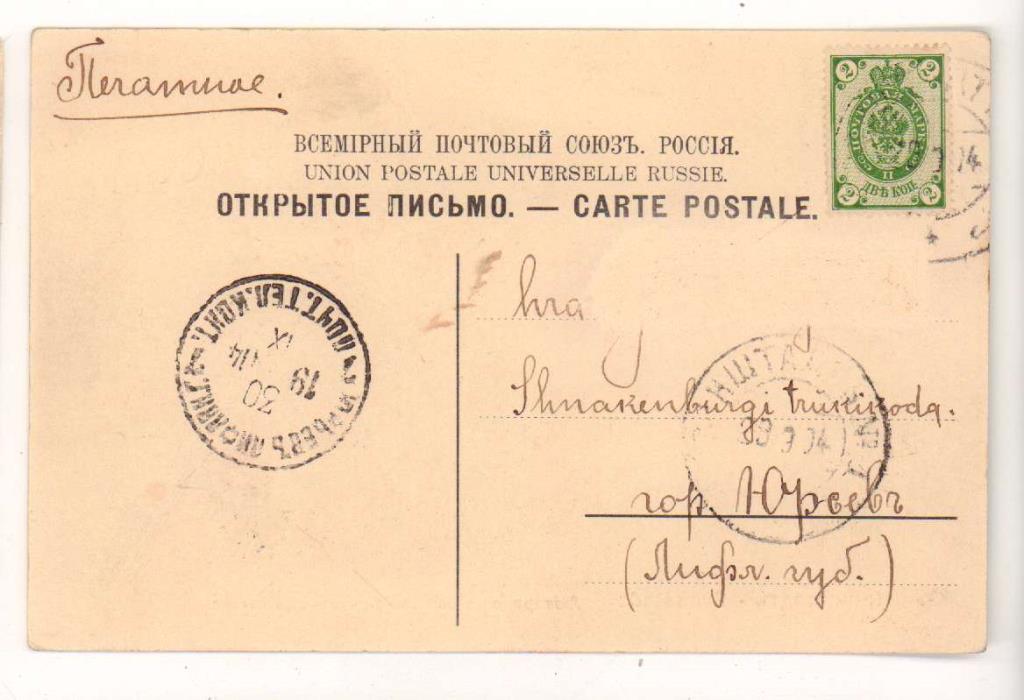 Печатное.
ВСЕМІРНЫЙ ПОЧТОВЫЙ СОЮЗЪ. РОССІЯ.
UNION POSTALE UNIVERSELLE RUSSIE.
ОТКРЫТОЕ ПИСЬМО. — CARTE POSTALE.
2 2
ПОЧТОВАЯ МАРКА
II
ДВѢ КОП.
2 2
hra
Shnakenburgi trükikoda.
гор Юрьевъ
(Лифл. губ.)
ЮРЬЕВЪ ЛИФЛЯНД. ПОЧТ. ТЕЛ. КОНТ.
30
19 04
IX